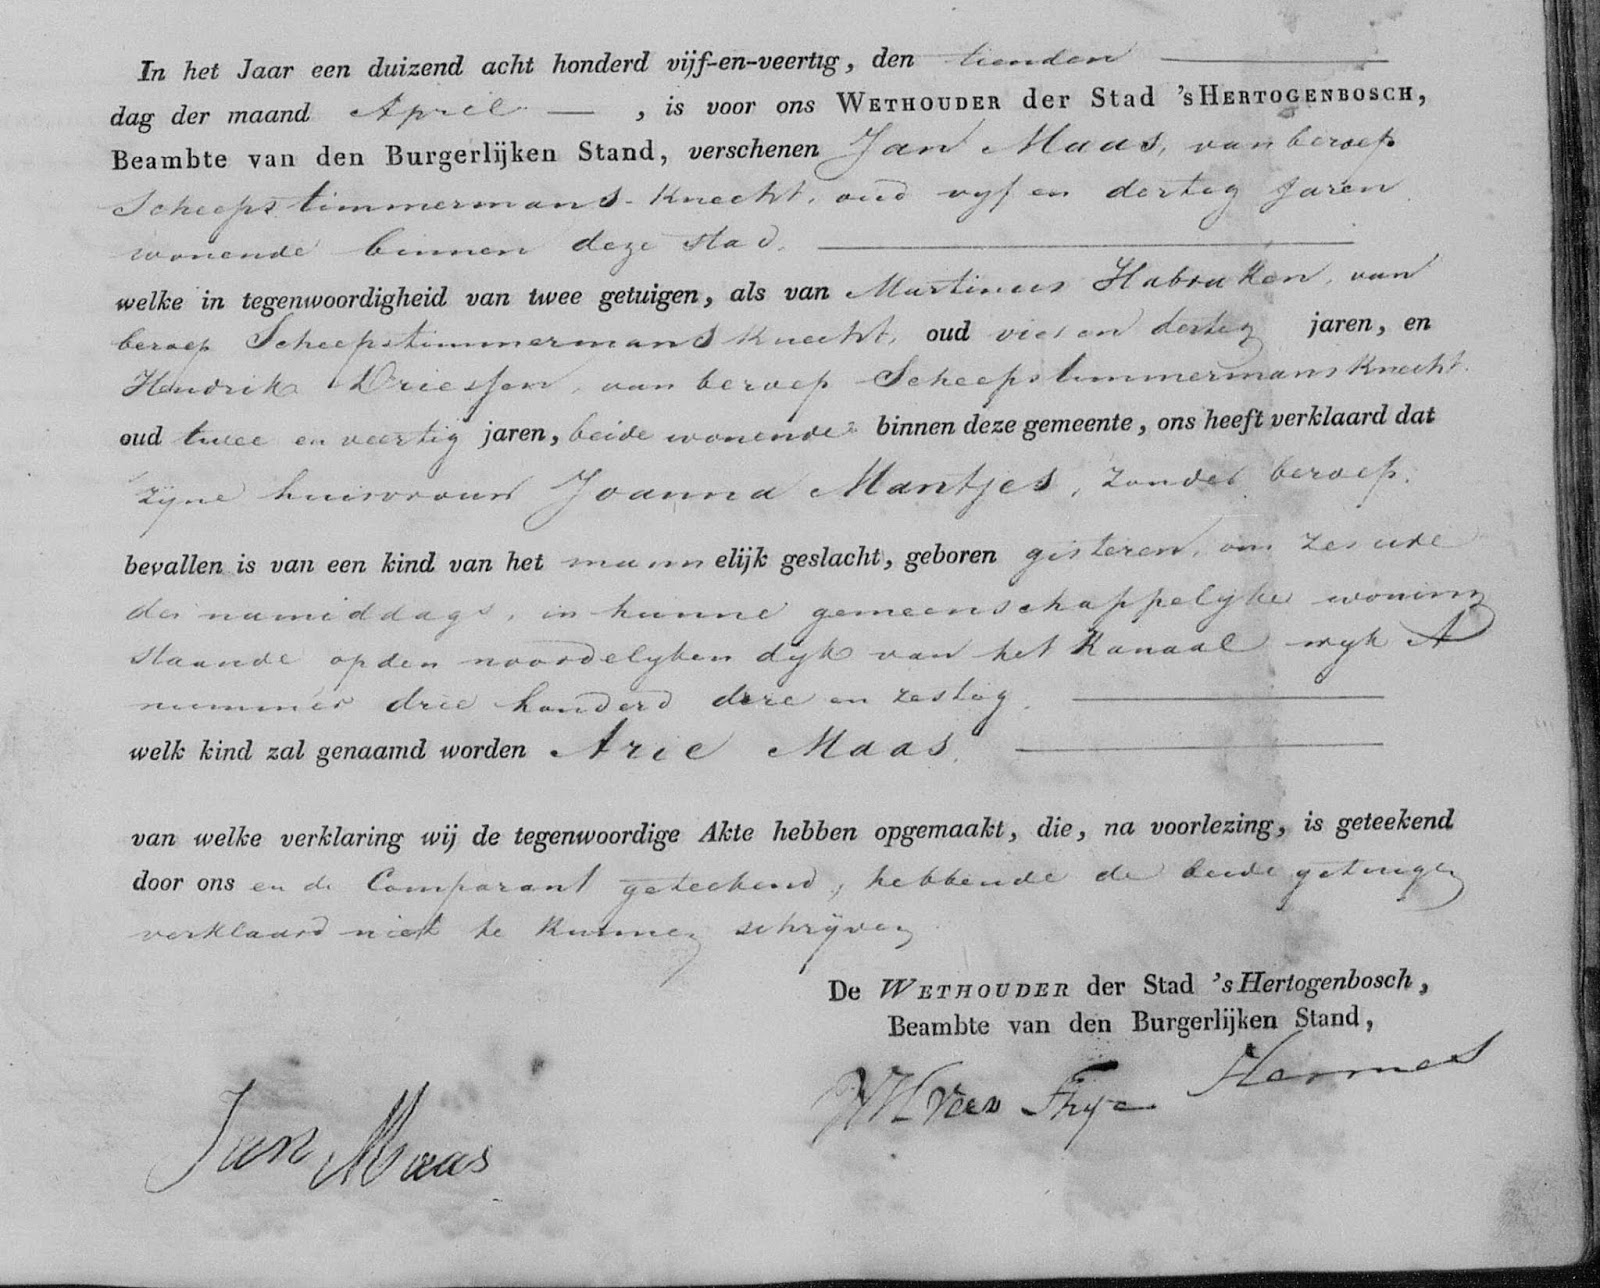 In het Jaar een duizend acht honderd vijf-en-veertig, den tienden
dag der maand April, is voor ons WETHOUDER der Stad 'sHERTOGENBOSCH,
Beambte van den Burgerlijken Stand, verschenen Jan Maas, van beroep
Scheepstimmermans-Knecht, oud vyf en dertig Jaren
wonende binnen deze stad.
welke in tegenwoordigheid van twee getuigen, als van Martinus Habraken, van
beroep Scheepstimmermans Knecht, oud vier en dertig jaren, en
Hendrik Driessen, van beroep Scheepstimmermans Knecht.
oud twee en veertig jaren, beide wonende binnen deze gemeente, ons heeft verklaard dat
zyne huisvrouw Joanna Mantjes, zonder beroep.
bevallen is van een kind van het mannelijk geslacht, geboren gisteren, om zes ure
des namiddags, in hunne gemeenschappelyke woning
staande op den noordelyken dyk van het Kanaal wyk A
nummer drie honderd drie en zestig.
welk kind zal genaamd worden Arie Maas.
van welke verklaring wij de tegenwoordige Akte hebben opgemaakt, die, na voorlezing, is geteekend
door ons en de Comparant geteekend, hebbende de beide getuigen
verklaard niet te kunnen schrijven
De WETHOUDER der Stad 'sHertogenbosch,
Beambte van den Burgerlijken Stand,
Jan Maas